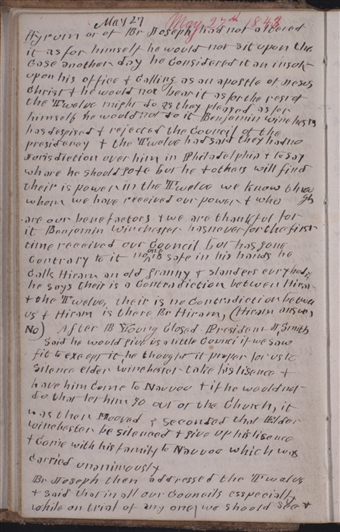 May 27 May, 27th 1843
Hyrum or of Br Joseph, had not altered
it as for himself he would not sit upon the
Case another day he Considered it an insult
upon his office & Calling as an apostle of Jesus
Christ & he would not bear it as for the rest of
the Twelve might do as they pleased as for
himself he would not do it Benjamin Winchester
has despised & rejected the Council of the
presidency & the Twelve had said they had no
Jurisdiction over him in Philadelphia & to say
where he should go &c but he & others will find
their is power in the Twelve we know
whom we have received our power &
are our benefactors & we are thankful for
it Benjamin Winchester has never for the first
time received our Council but has gone
Contrary to it no one is safe in his hands he
Calls Hiram an old granny & slanders evrybody
he says their is a Contradiction between Hiram
& the Twelve, their is no Contradiction between
us & Hiram is there Br Hiram, (Hiram answers
No) After B Young Closed President H. Smith
Said he would give us a little Council if we saw
fit to except it, he thought it proper for us to
Silence elder winchester take his lisence &
have him Come to Nauvoo & if he would not
do that let him go out of the Church, it
was then Moved & seconded that Elder
winchester be silenced & give up his lisence
& Come with his family to Nauvoo which was
Carried unaninously
Br Joseph then addressed the Twelve
& said that in all our Councils especially
while on trial of any one we should see &